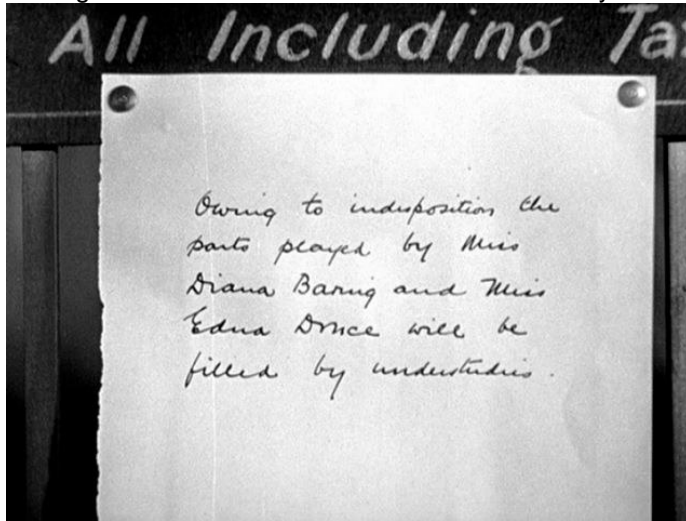 All Including Ta
Owing to indisposition the
parts played by Miss
Diana Baring and Miss
Edna Druce will be
filled by understudies.